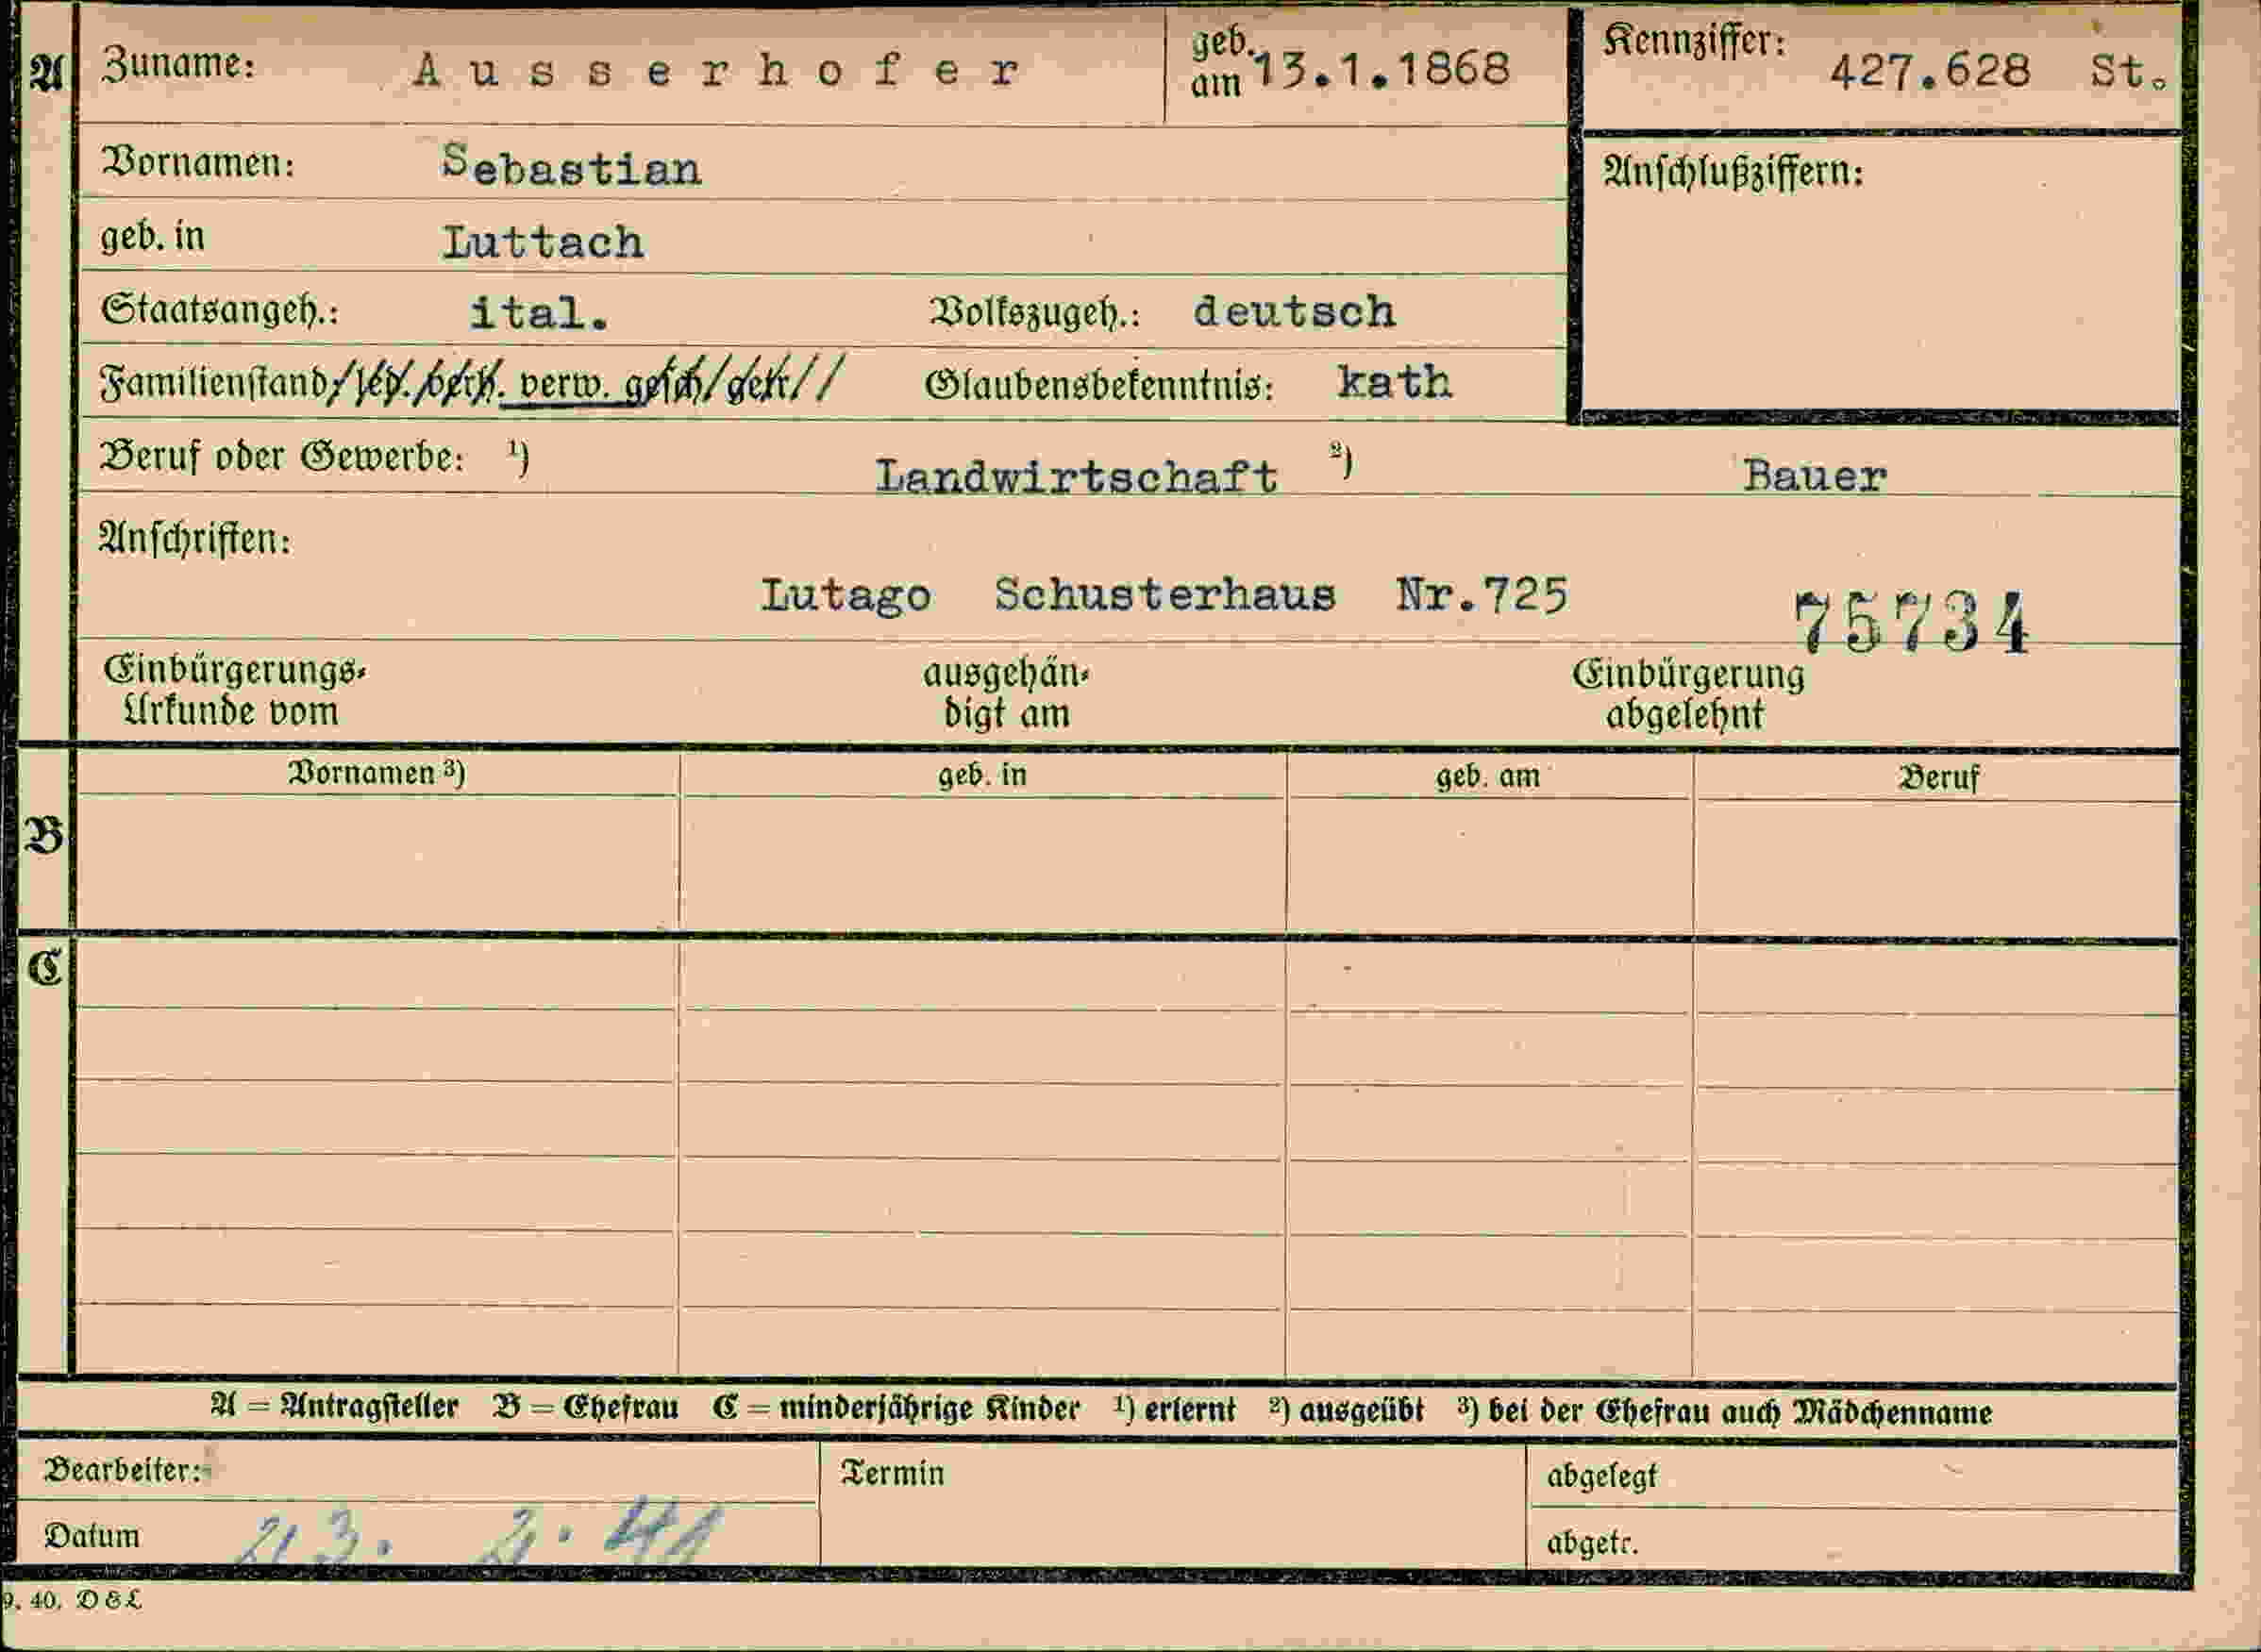 A Zuname: Ausserhofer geb. am 13.1.1868 Kennziffer: 427.628 St.
Vornamen: Sebastian Anschlußziffern:
geb. in Luttach
Staatsangeh.: ital. Volkszugeh.: deutsch
Familienstand: led. verh. verw. gesch. getr. Glaubensbekenntnis: kath
Beruf oder Gewerbe: ¹) Landwirtschaft ²) Bauer
Anschriften:
Lutago Schusterhaus Nr.725 75734
Einbürgerungs-Urkunde vom ausgehän-digt am Einbürgerung abgelehnt
Vornamen ³) geb. in geb. am Beruf
B
C
A = Antragsteller B = Ehefrau C = minderjährige Kinder ¹) erlernt ²) ausgeübt ³) bei der Ehefrau auch Mädchenname
Bearbeiter: Termin abgelegt
Datum 23. 2. 41 abgetr.
9. 40. DEL